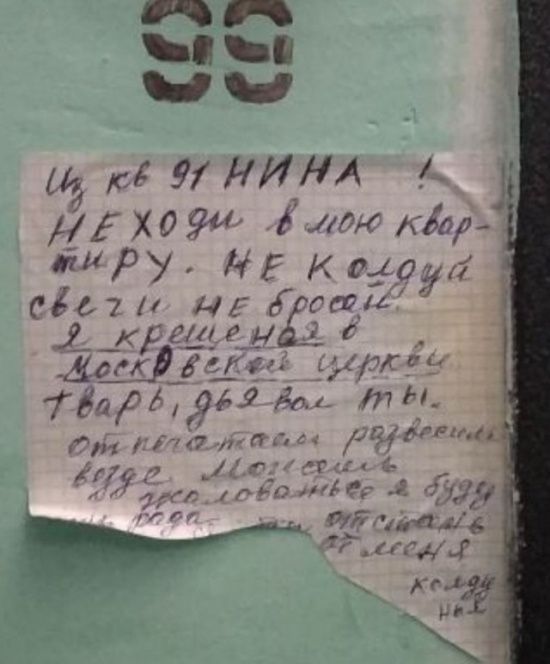 99
Из кв 91 НИНА !
НЕ ХОДИ в мою квар-
тиру. НЕ КОЛДУЙ
свечи НЕ бросай.
Я крешеная в
московской церкви
тварь, дьявол ты.
отпечатаем развесим
везде можешь
жаловаться я буду
рада отстань
от меня
колду
нья